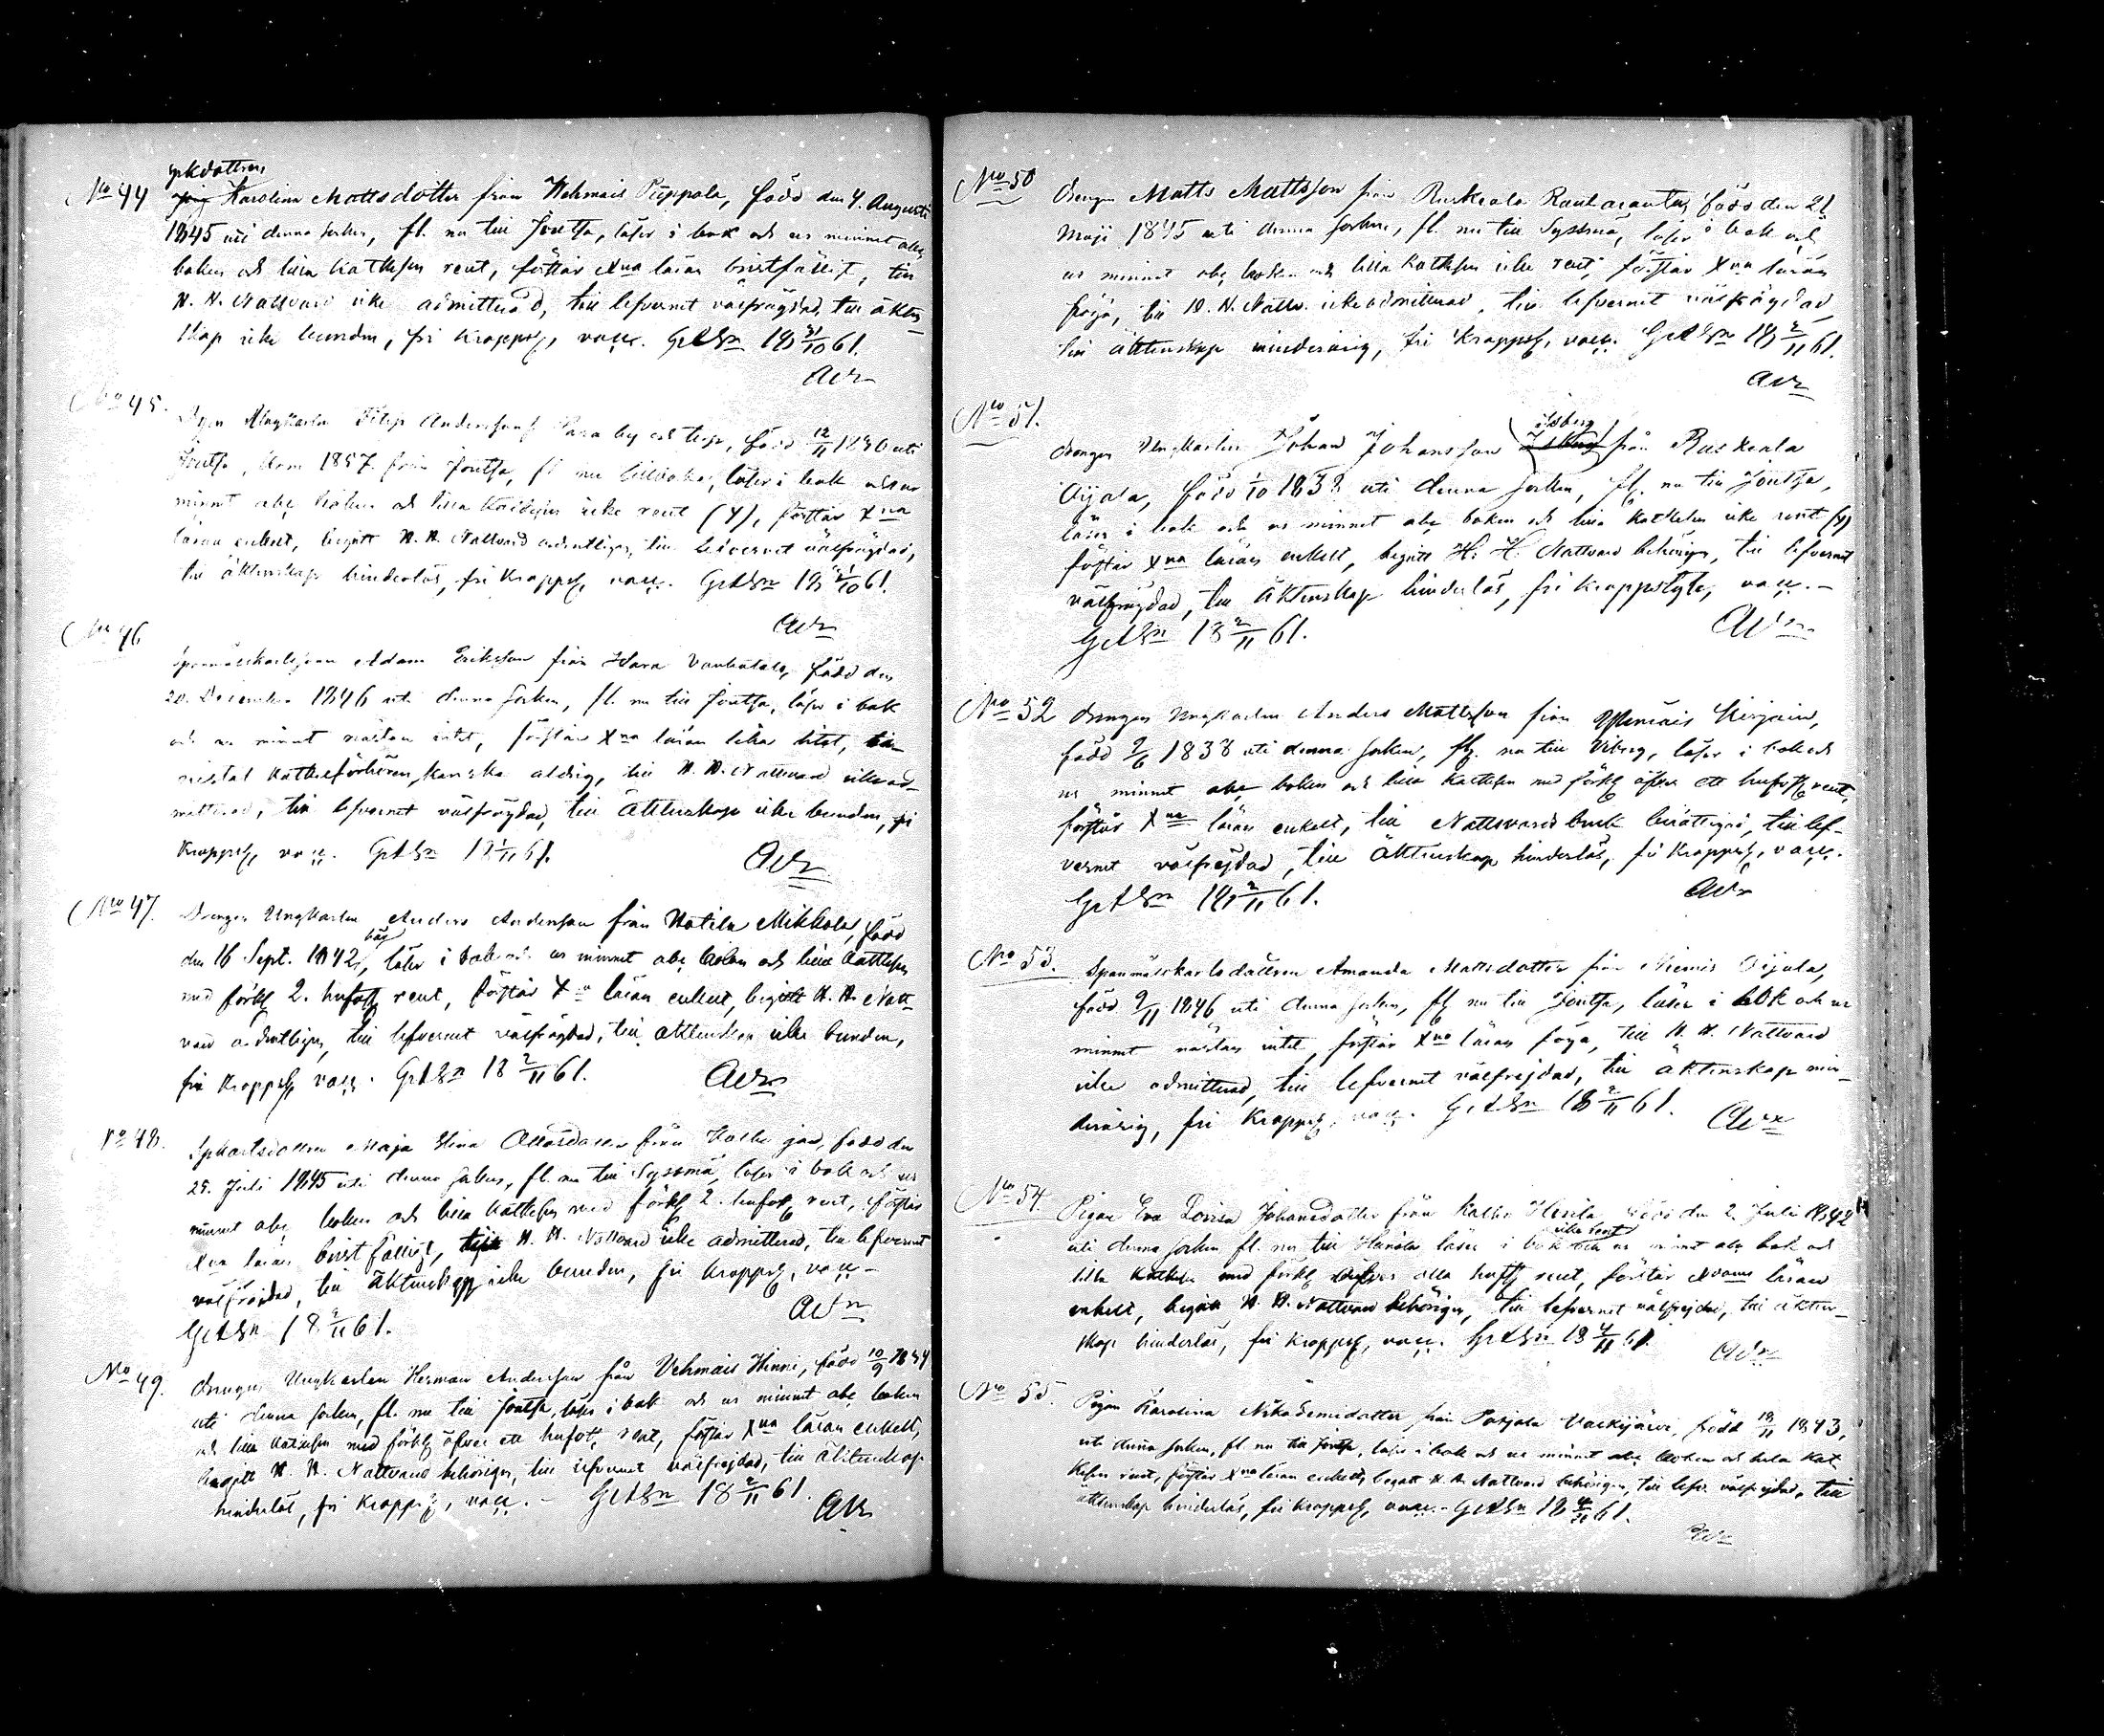 spkdottren
No 44 Karolina Mattsdotter från Wehmais Püppola, född den 4. Augusti
1845 uti denna socken, fl. nu till Joutsa, läser i bok och ur minnet abc
boken och lilla kathkesen rent, förstår Xna läran bristfälligt, till
H. H. Nattvard icke admitterad, till lefvernet välfrägdad, till äkten-
skap icke bunden, fri kropps, vacc. GrdSn 18 31/10 61.
No 45. Ungkarlen Filip Andersson, född 12/11 1830 uti
Joutsa, kom 1857 från Joutsa, fl nu tillbaka, läser i bok och ur
minnet abc boken och lilla icke rent (4), förstår Xna
läran enkelt, begått H. H. Nattvard ordentligen, till lefvernet välfrägdad,
till äktenskap hinderlös, fri kropps, vacc. GrdSn 18 31/10 61.
No 46
Spanmålskarlssonen Adam Eriksson från född den
20. December 1846 uti denna socken, fl. nu till Joutsa, läser i bok
och ur minnet nästan intet, förstår Xna läran lika litet,
kanske aldrig, till H. H. Nattvard icke ad-
mitterad, till lefvernet välfrägdad, till äktenskap icke bunden, fri
kropps, vacc. GrdSn 18 1/11 61.
No 47. Drengen Ungkarlen Anders Andersson från Mikkola, född
den 16 Sept. 1842, här, läser i bok och ur minnet abc boken och lilla kattkesen
med förkl 2. hufst rent, förstår Xna läran enkelt, begått H. H. Natt-
vard ordentligen, till lefvernet välfrägdad, till äktenskap icke bunden,
fri kropps, vacc. GrdSn 18 2/11 61.
No 48. Maja Stina från född den
25. Juli 1845 uti denna socken, fl. nu till Sysmä, läser i bok och ur
minnet abc boken och lilla kattkesen med förkl 2. hufst rent, förstår
Xna läran bristfälligt, till H. H. Nattvard icke admitterad, till lefvernet
välfrejdad, till äktenskap icke bunden, fri kropps, vacc.-
GrdSn 18 2/11 61.
No 49. Drengen Ungkarlen Herman Andersson från Vehmais Hinni, född 10/9
uti denna socken, fl. nu till Joutsa, läser i bok och ur minnet abc boken
och lilla katkesen med förkl öfver ett hufst, rent, förstår Xna läran enkelt,
begått H. H. Nattvard behörigen, till lefvernet välfrejdad, till äktenskap
hinderlös, fri kropps, vacc. - GrdSn 18 2/11 61.
No 50 Drengen Matts Mattsson från Ruskeala född den 21
Maji 1845 uti denna socken, fl. nu till Sysmä, läser i bok och
ur minnet abc boken och lilla kattkesen icke rent, förstår Xna läran
föga, till H. H. Nattv. icke admitterad, till lefvernet välfrägdad,
till äktenskap minderårig, fri kropps, vacc. GrdSn 18 2/11 61.
No 51.
Drengen Ungkarlen Johan Johansson från Ruskeala
Oijala, född 1/10 1838 uti denna socken, fl. nu till Joutsa,
läser i bok och ur minnet abc boken och lilla kattkesen icke rent (4)
förstår Xna läran enkelt, begått H. H. Nattvard behörigen, till lefvernet
välfrägdad, till äktenskap hinderlös, fri kroppslyte, vacc. -
GrdSn 18 2/11 61.
No 52 Drengen Ungkarlen Anders Mattsson från
född 9/6 1838 uti denna socken, fl. nu till Viborg, läser i bok och
ur minnet abc boken och lilla kattkesen med förkl öfver ett hufst rent,
förstår Xna läran enkelt, till Nattvards bruk berättigad, till lef-
vernet välfrejdad, till äktenskap hinderlös, fri kropps, vacc.
GrdSn 18 2/11 61.
No 53. Spanmålskarlsdottren Amanda Mattsdotter från Niemis Oijala,
född 9/11 1846 uti denna socken, fl nu till Joutsa, läser i bok och ur
minnet nästan intet, förstår Xna läran föga, till H. H. Nattvard
icke admitterad, till lefvernet välfrejdad, till äktenskap min-
derårig, fri kropps, vacc. GrdSn 18 2/11 61.
No 54. Pigan Eva Lovisa Johansdotter från Kalho född den 2. Juli 1842
uti denna socken fl. nu till läser i bok icke rent ur minnet abc bok och
lilla kattkes med förkl öfver alla hufst rent, förstår Xdoms läran
enkelt, begått H. H. Nattvard behörigen, till lefvernet välfrejdad, till äkten-
skap hinderlös, fri kropps, vacc. GrdSn 18 4/11 61.
No 55. Pigan Karolina Nikodemidotter från Pohjola Vaskijärvi, född 18/11 1843,
uti denna socken, fl. nu till Joutsa, läser i bok och ur minnet abc boken och hela kat
kesen rent, förstår Xna läran enkelt, begått H. H. Nattvard behörigen, till lefv. välfrejdad, till
äktenskap hinderlös, fri kropps, vacc. - GrdSn 18 4/11 61.